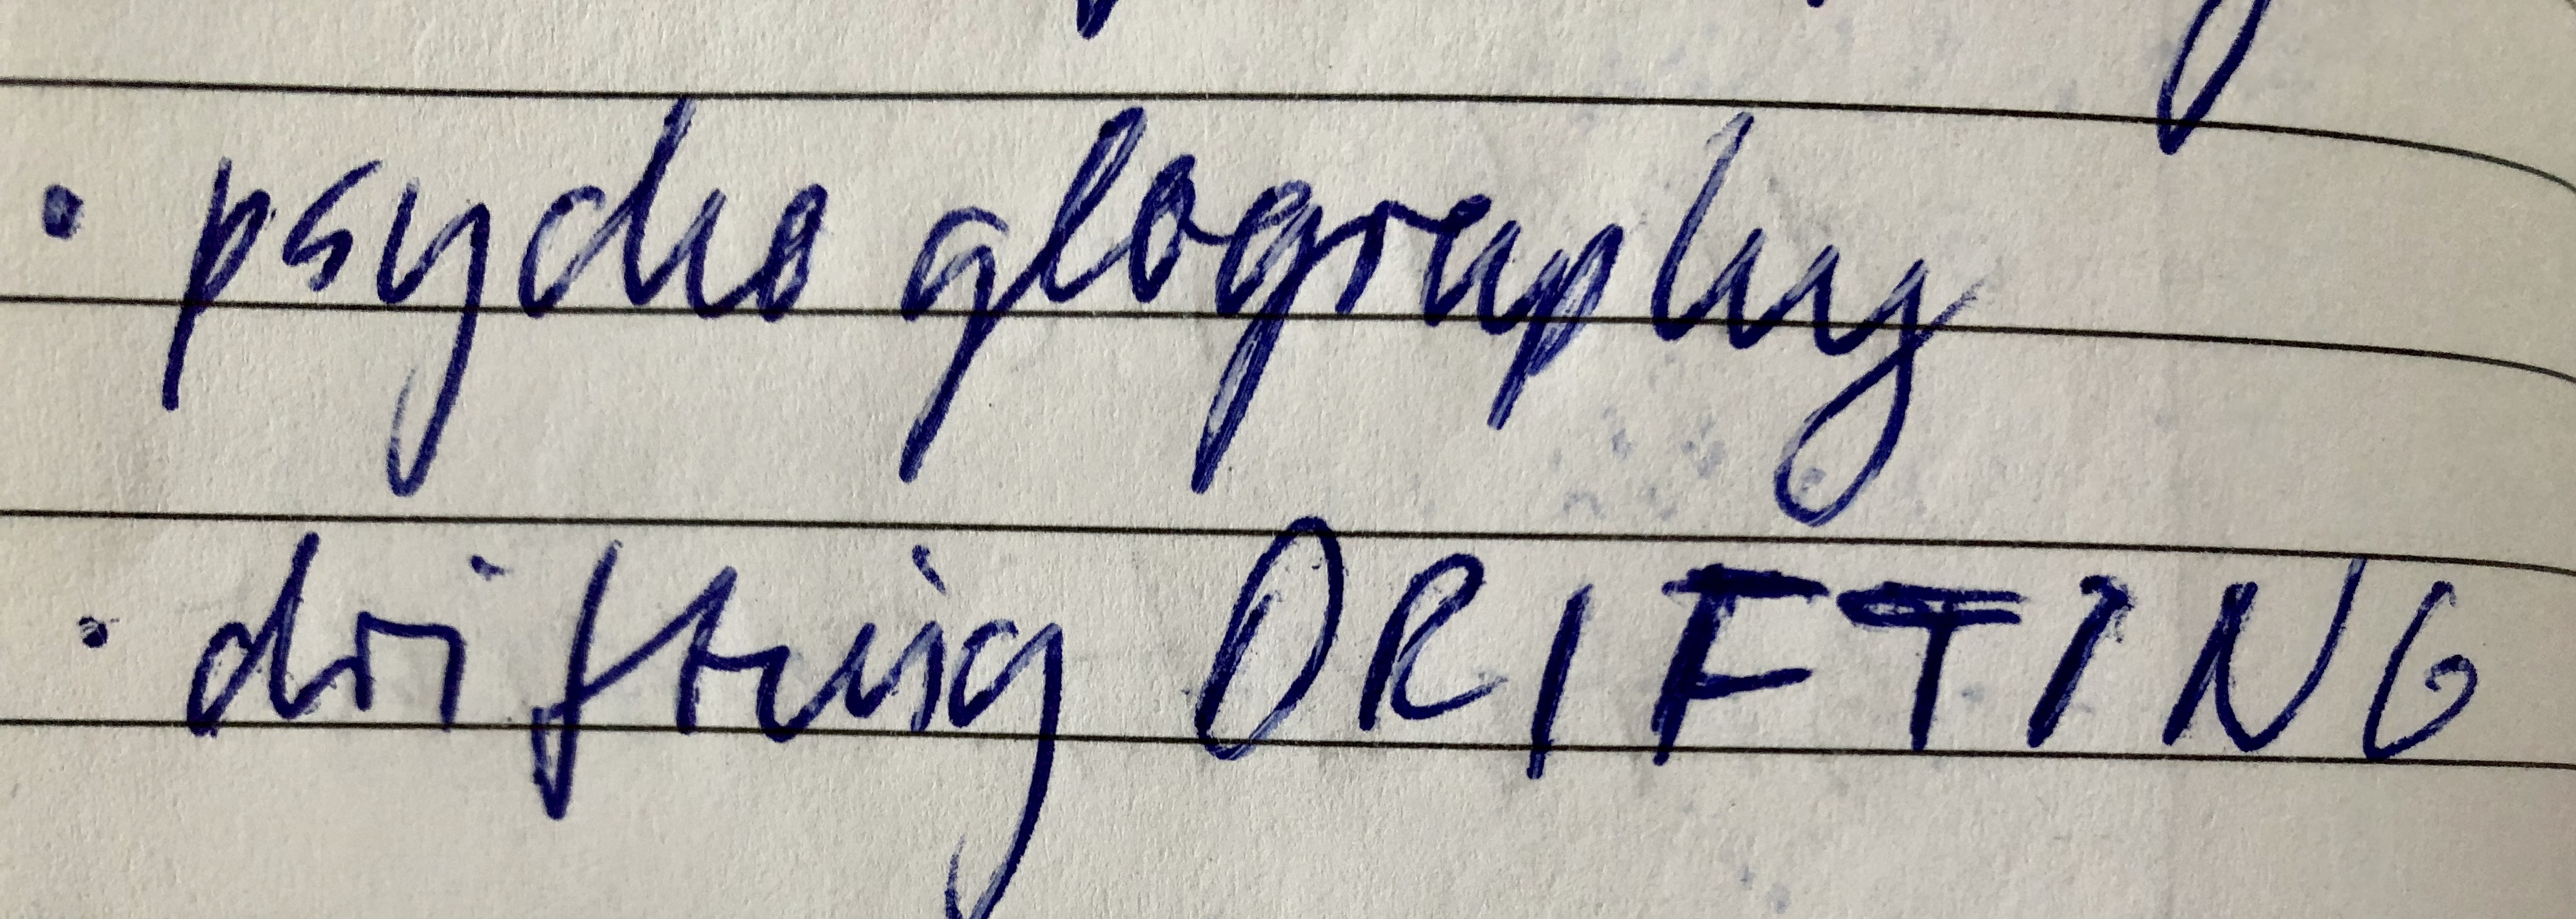 · psycho geography
· drifting DRIFTING